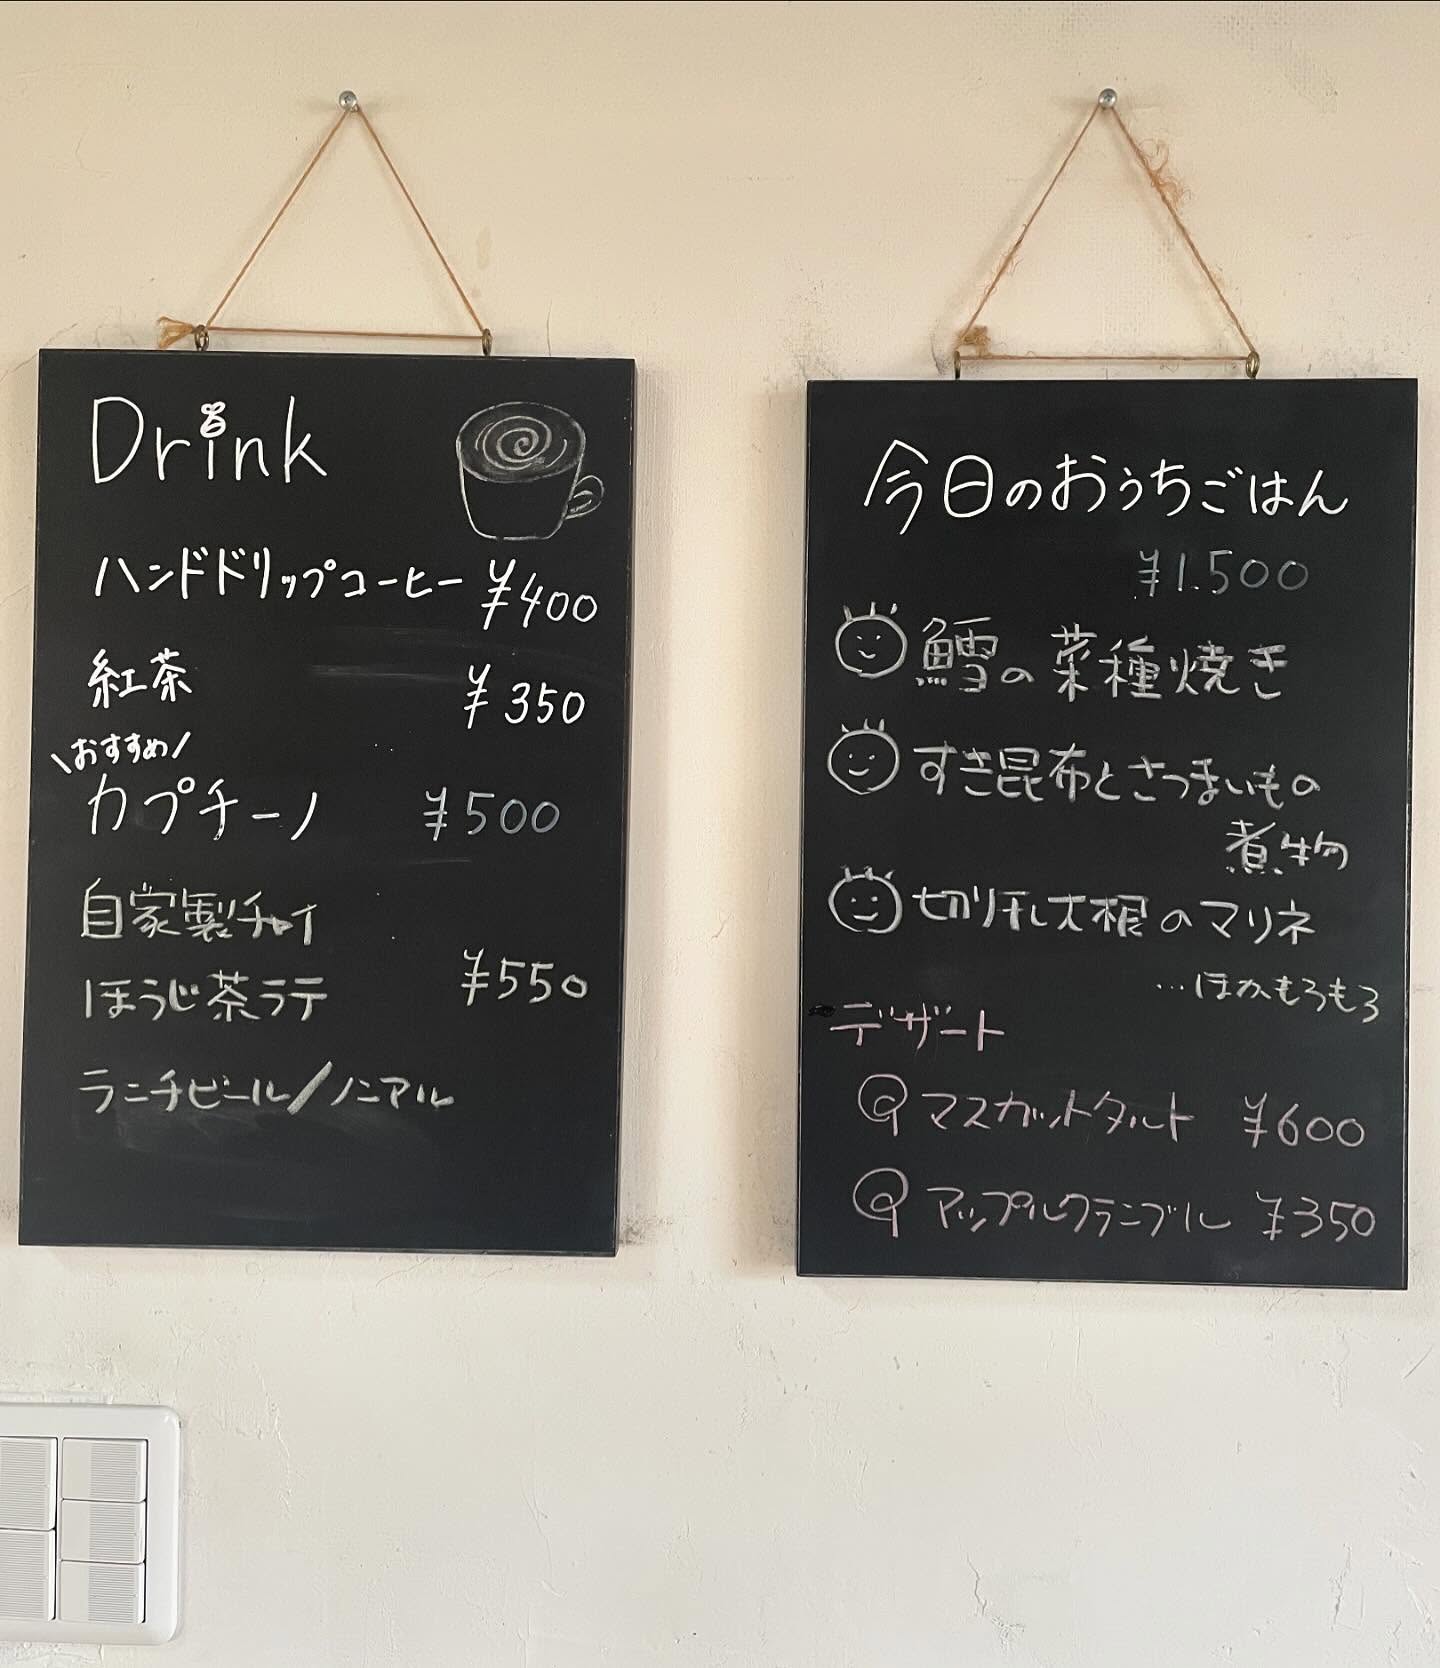 Drink
ハンドドリップコーヒー ¥400
紅茶 ¥350
\おすすめ/
カプチーノ ¥500
自家製チャイ
ほうじ茶ラテ ¥550
ランチビール/ノンアル
今日のおうちごはん
¥1.500
鱈の菜種焼き
すき昆布とさつまいもの
煮物
切り干し大根のマリネ
…ほかもろもろ
デザート
マスカットタルト ¥600
アップルクランブル ¥350